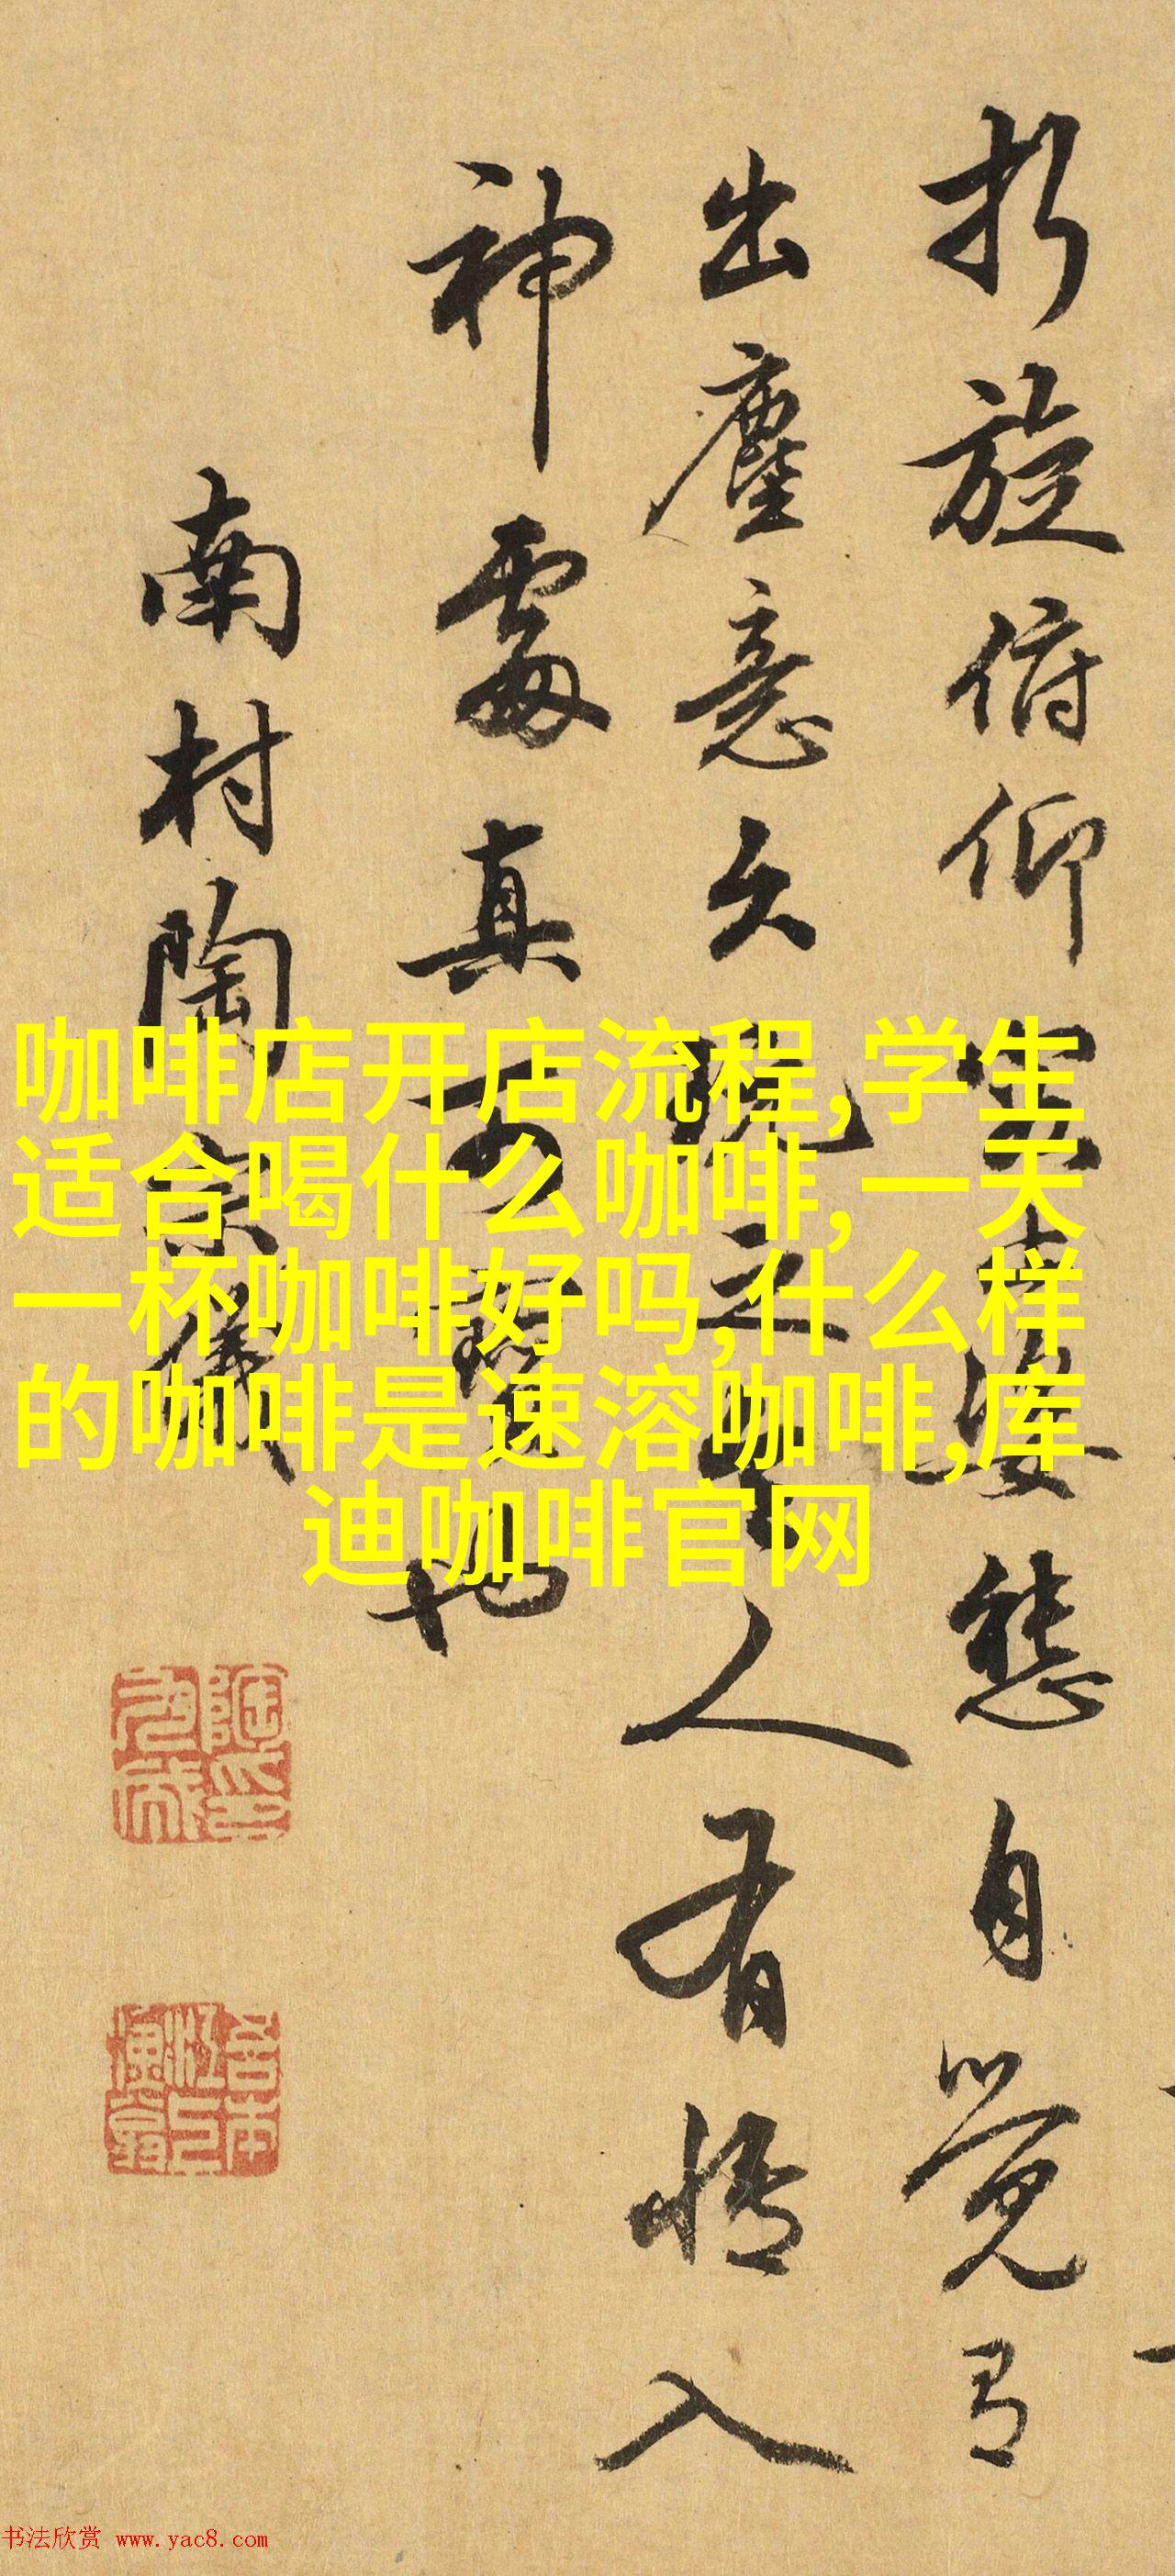 折旋俯仰姿態自覺有
出塵意久玩之令人有情入
神處真可寶也
南村陶宗儀
咖啡店开店流程,学生
适合喝什么咖啡,一天
一杯咖啡好吗,什么样
的咖啡是速溶咖啡,库
迪咖啡官网
书法欣赏 www.yac8.com